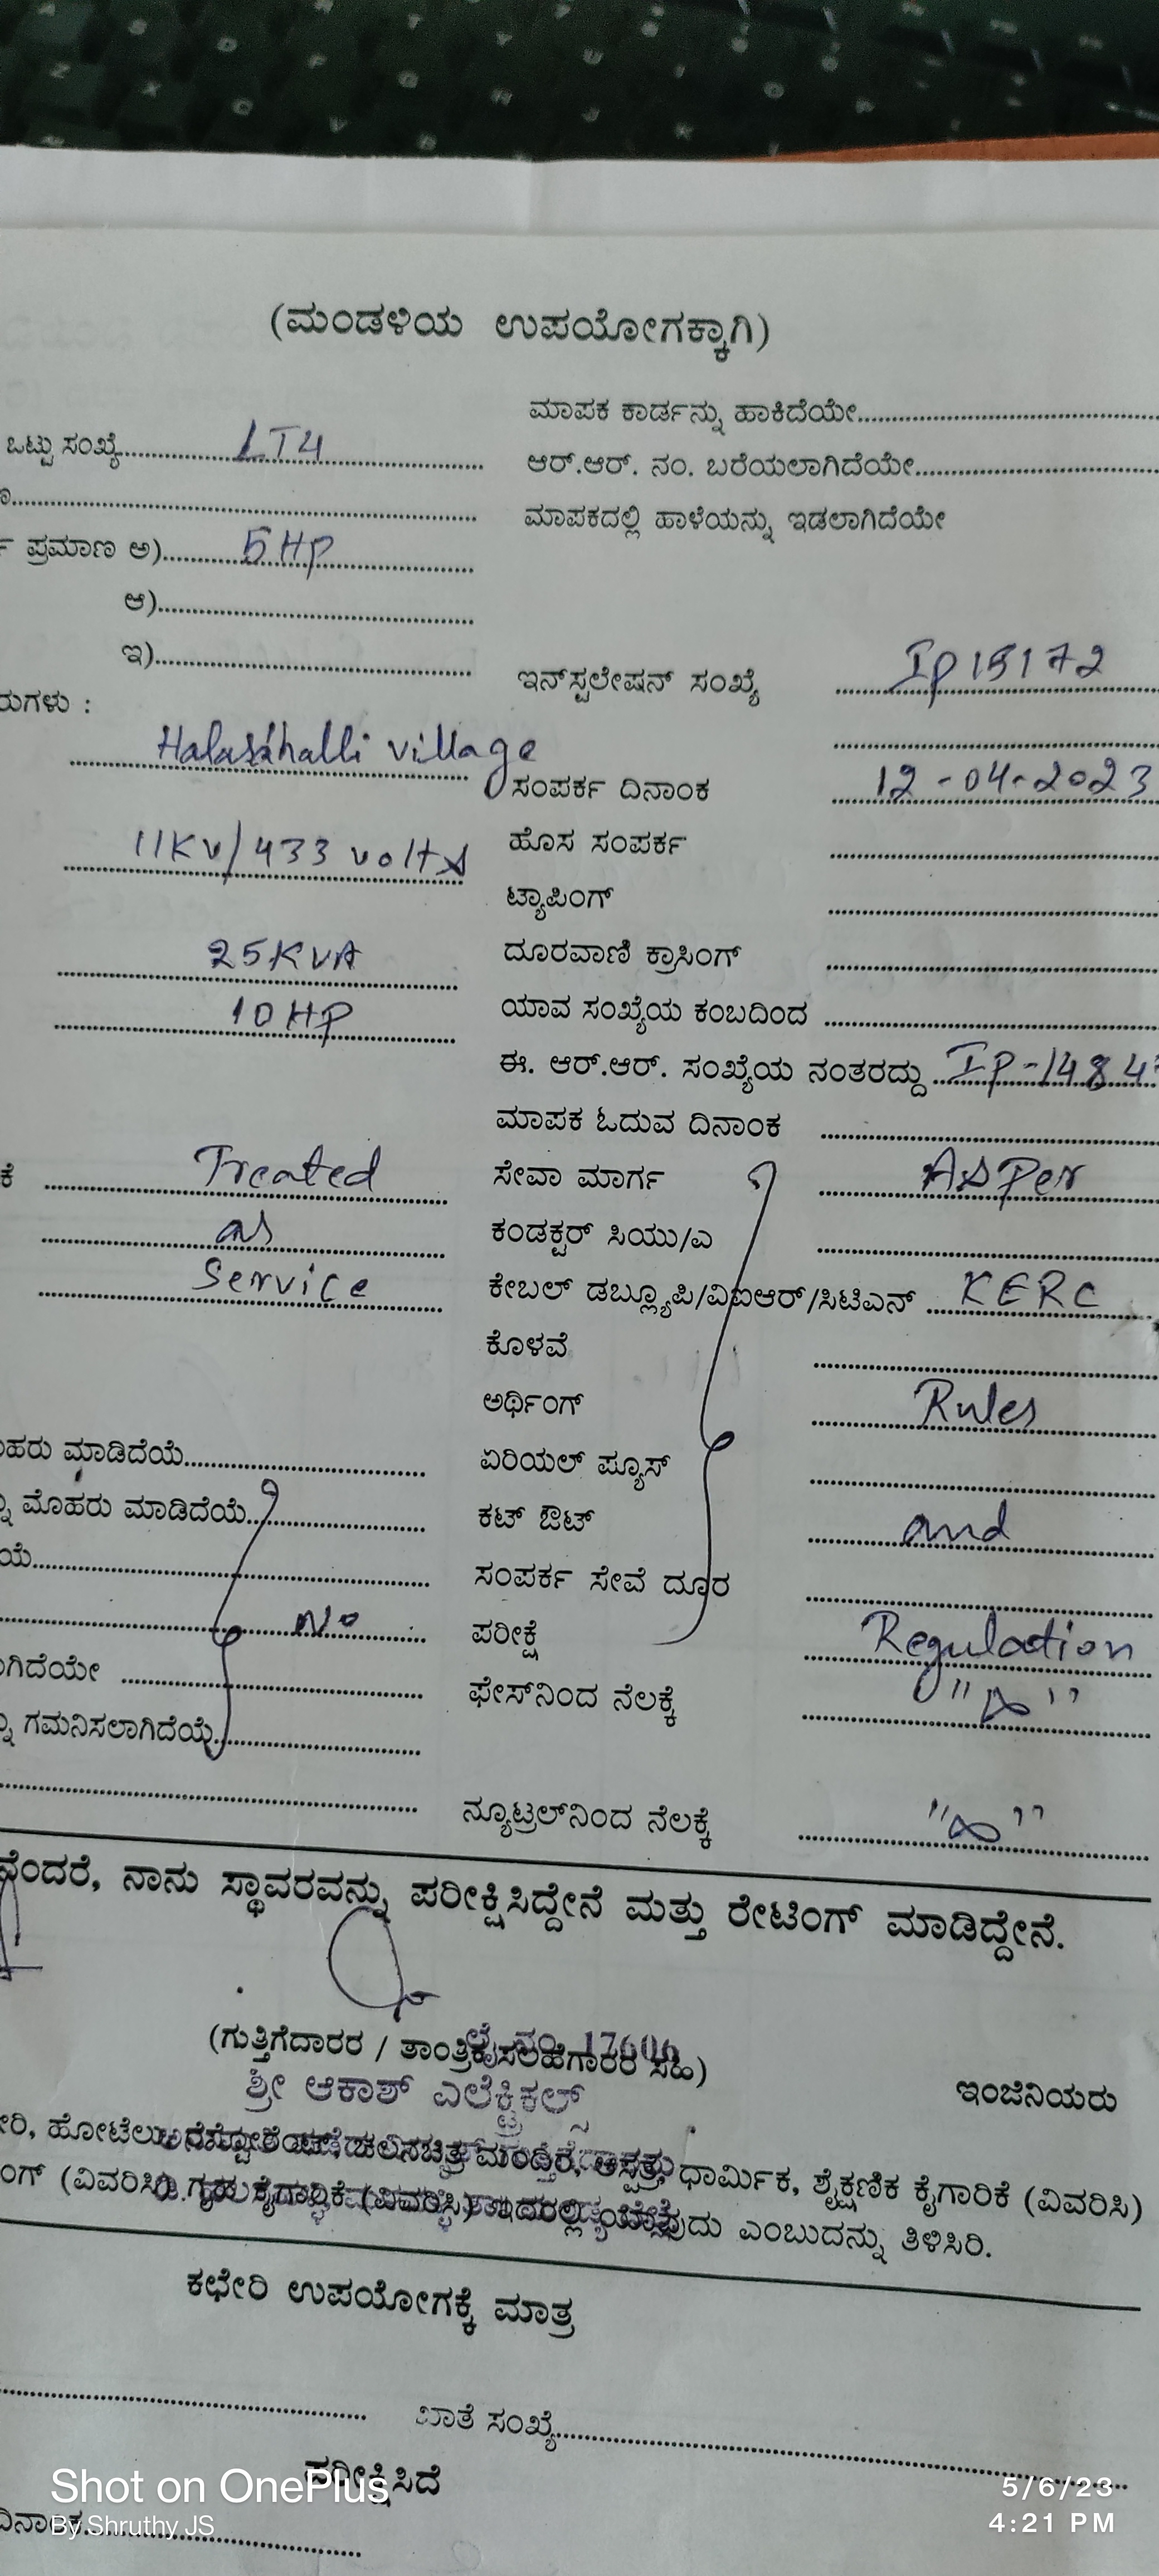 (ಮಂಡಳಿಯ ಉಪಯೋಗಕ್ಕಾಗಿ)
ಮಾಪಕ ಕಾರ್ಡನ್ನು ಹಾಕಿದೆಯೇ
ಒಟ್ಟು ಸಂಖ್ಯೆ LT4
ಆರ್.ಆರ್. ನಂ. ಬರೆಯಲಾಗಿದೆಯೇ
ಮಾಪಕದಲ್ಲಿ ಹಾಳೆಯನ್ನು ಇಡಲಾಗಿದೆಯೇ
ಪ್ರಮಾಣ ಅ) 5HP
ಆ)
ಇ)
ಇನ್‌ಸ್ಟಲೇಷನ್ ಸಂಖ್ಯೆ IP15172
ರುಗಳು :
Halasahalli village
ಸಂಪರ್ಕ ದಿನಾಂಕ 12-04-2023
11KV/433 volts ಹೊಸ ಸಂಪರ್ಕ
ಟ್ಯಾಪಿಂಗ್
25KVA ದೂರವಾಣಿ ಕ್ರಾಸಿಂಗ್
10HP ಯಾವ ಸಂಖ್ಯೆಯ ಕಂಬದಿಂದ
ಈ. ಆರ್.ಆರ್. ಸಂಖ್ಯೆಯ ನಂತರದ್ದು IP-1484
ಮಾಪಕ ಓದುವ ದಿನಾಂಕ
ಕೆ Treated ಸೇವಾ ಮಾರ್ಗ As Per
as ಕಂಡಕ್ಟರ್ ಸಿಯು/ಎ
Service ಕೇಬಲ್ ಡಬ್ಲ್ಯೂಪಿ/ವಿಐಆರ್/ಸಿಟಿಎನ್ KERC
ಕೊಳವೆ
ಅರ್ಥಿಂಗ್ Rules
ಹರು ಮಾಡಿದೆಯೆ ಏರಿಯಲ್ ಪ್ಯೂಸ್
ಮೊಹರು ಮಾಡಿದೆಯೆ ಕಟ್ ಔಟ್ and
ಯೆ ಸಂಪರ್ಕ ಸೇವೆ ದೂರ
No ಪರೀಕ್ಷೆ Regulation
ಗಿದೆಯೇ ಫೇಸ್‌ನಿಂದ ನೆಲಕ್ಕೆ "∞"
ಗಮನಿಸಲಾಗಿದೆಯೆ
ನ್ಯೂಟ್ರಲ್‌ನಿಂದ ನೆಲಕ್ಕೆ "∞"
ವೆಂದರೆ, ನಾನು ಸ್ಥಾವರವನ್ನು ಪರೀಕ್ಷಿಸಿದ್ದೇನೆ ಮತ್ತು ರೇಟಿಂಗ್ ಮಾಡಿದ್ದೇನೆ.
ನಂ. 17606
(ಗುತ್ತಿಗೆದಾರರ / ತಾಂತ್ರಿಕ ಸಲಹೆಗಾರರ ಸಹಿ)
ಶ್ರೀ ಆಕಾಶ್ ಎಲೆಕ್ಟ್ರಿಕಲ್ಸ್ ಇಂಜಿನಿಯರು
ರಿ, ಹೋಟೆಲು ಚಲನಚಿತ್ರ ಮಂದಿರ, ಆಸ್ಪತ್ರೆ, ಧಾರ್ಮಿಕ, ಶೈಕ್ಷಣಿಕ ಕೈಗಾರಿಕೆ (ವಿವರಿಸಿ)
ಂಗ್ (ವಿವರಿಸಿ) ಗೃಹ ಕೈಗಾರಿಕೆ (ವಿವರಿಸಿ) ಇದರಲ್ಲಿ ಯಾವುದು ಎಂಬುದನ್ನು ತಿಳಿಸಿರಿ.
ಕಛೇರಿ ಉಪಯೋಗಕ್ಕೆ ಮಾತ್ರ
ಖಾತೆ ಸಂಖ್ಯೆ
ಪರೀಕ್ಷಿಸಿದೆ
Shot on OnePlus
By Shruthy JS
ದಿನಾಂಕ
5/6/23
4:21 PM